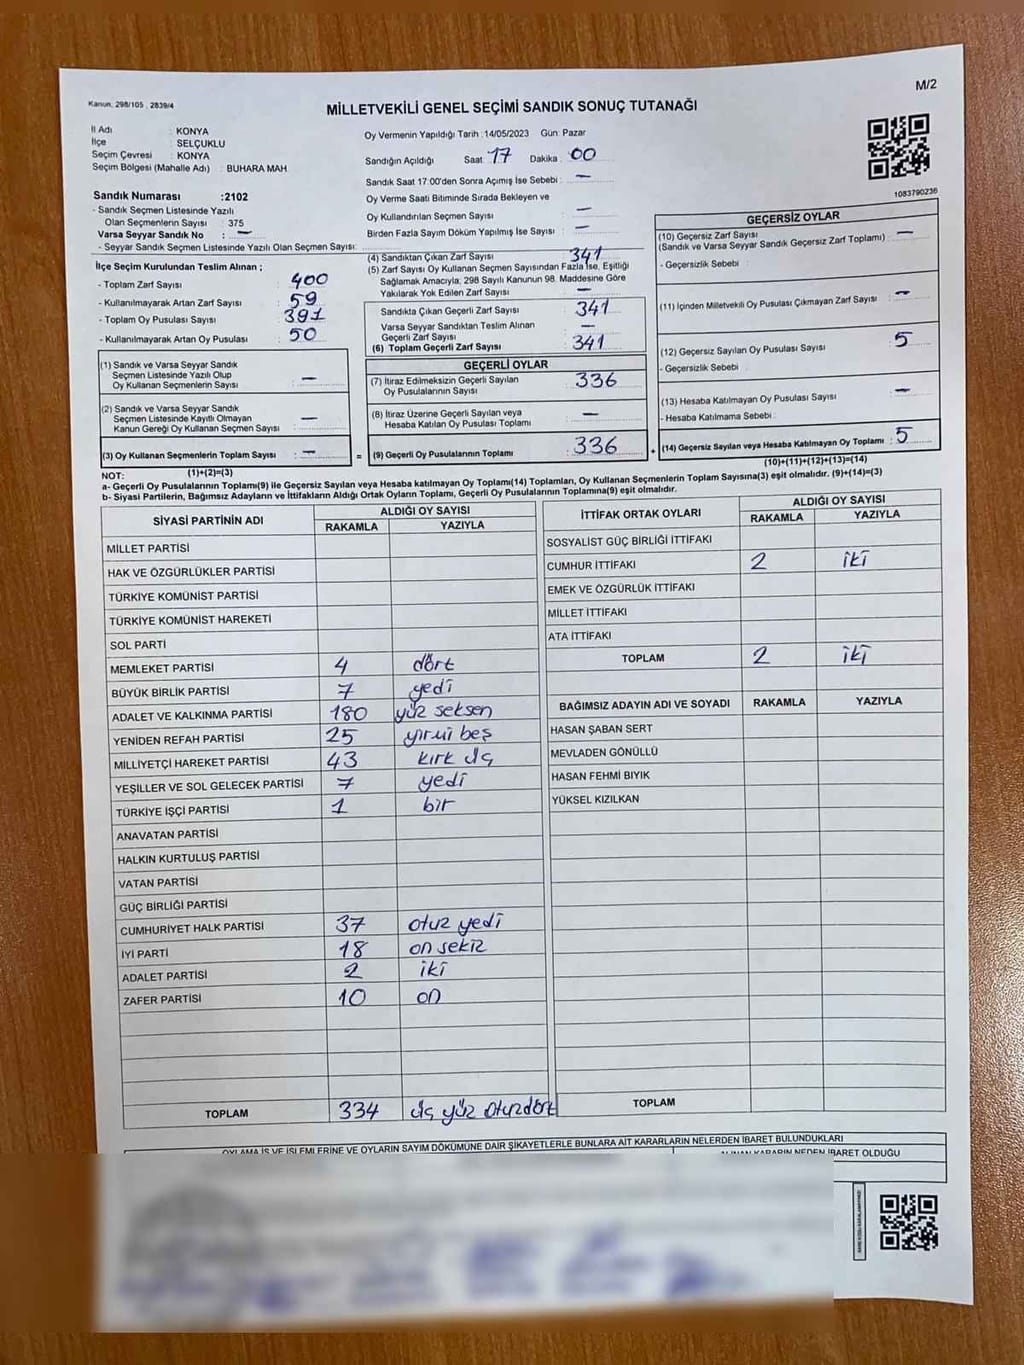 Kanun, 298/105 , 2839/4
M/2
MİLLETVEKİLİ GENEL SEÇİMİ SANDIK SONUÇ TUTANAĞI
İl Adı : KONYA
İlçe : SELÇUKLU
Seçim Çevresi : KONYA
Seçim Bölgesi (Mahalle Adı) : BUHARA MAH
Sandık Numarası :2102
- Sandık Seçmen Listesinde Yazılı
Olan Seçmenlerin Sayısı : 375
Varsa Seyyar Sandık No : —
- Seyyar Sandık Seçmen Listesinde Yazılı Olan Seçmen Sayısı:
Oy Vermenin Yapıldığı Tarih :14/05/2023 Gün: Pazar
Sandığın Açıldığı Saat 17 Dakika : 00
Sandık Saat 17:00'den Sonra Açımış İse Sebebi : —
Oy Verme Saati Bitiminde Sırada Bekleyen ve
Oy Kullandırılan Seçmen Sayısı : —
Birden Fazla Sayım Döküm Yapılmış İse Sayısı : —
1083790236
İlçe Seçim Kurulundan Teslim Alınan ;
- Toplam Zarf Sayısı : 400
- Kullanılmayarak Artan Zarf Sayısı : 59
- Toplam Oy Pusulası Sayısı : 391
- Kullanılmayarak Artan Oy Pusulası : 50
(1) Sandık ve Varsa Seyyar Sandık
Seçmen Listesinde Yazılı Olup
Oy Kullanan Seçmenlerin Sayısı : —
(2) Sandık ve Varsa Seyyar Sandık
Seçmen Listesinde Kayıtlı Olmayan
Kanun Gereği Oy Kullanan Seçmen Sayısı : —
(3) Oy Kullanan Seçmenlerin Toplam Sayısı : —
(1)+(2)=(3)
(4) Sandıktan Çıkan Zarf Sayısı : 341
(5) Zarf Sayısı Oy Kullanan Seçmen Sayısından Fazla İse, Eşitliği
Sağlamak Amacıyla; 298 Sayılı Kanunun 98. Maddesine Göre
Yakılarak Yok Edilen Zarf Sayısı : —
Sandıkta Çıkan Geçerli Zarf Sayısı : 341
Varsa Seyyar Sandıktan Teslim Alınan
Geçerli Zarf Sayısı : —
(6) Toplam Geçerli Zarf Sayısı : 341
GEÇERLİ OYLAR
(7) İtiraz Edilmeksizin Geçerli Sayılan
Oy Pusulalarının Sayısı : 336
(8) İtiraz Üzerine Geçerli Sayılan veya
Hesaba Katılan Oy Pusulası Toplamı : —
= (9) Geçerli Oy Pusulalarının Toplamı : 336
GEÇERSİZ OYLAR
(10) Geçersiz Zarf Sayısı : —
(Sandık ve Varsa Seyyar Sandık Geçersiz Zarf Toplamı)
- Geçersizlik Sebebi :
(11) İçinden Milletvekili Oy Pusulası Çıkmayan Zarf Sayısı : —
(12) Geçersiz Sayılan Oy Pusulası Sayısı : 5
- Geçersizlik Sebebi :
(13) Hesaba Katılmayan Oy Pusulası Sayısı : —
- Hesaba Katılmama Sebebi :
+ (14) Geçersiz Sayılan veya Hesaba Katılmayan Oy Toplamı : 5
(10)+(11)+(12)+(13)=(14)
NOT:
a- Geçerli Oy Pusulalarının Toplamı(9) ile Geçersiz Sayılan veya Hesaba katılmayan Oy Toplamı(14) Toplamları, Oy Kullanan Seçmenlerin Toplam Sayısına(3) eşit olmalıdır. (9)+(14)=(3)
b- Siyasi Partilerin, Bağımsız Adayların ve İttifakların Aldığı Ortak Oyların Toplamı, Geçerli Oy Pusulalarının Toplamına(9) eşit olmalıdır.
SİYASİ PARTİNİN ADI
ALDIĞI OY SAYISI
RAKAMLA YAZIYLA
MİLLET PARTİSİ
HAK VE ÖZGÜRLÜKLER PARTİSİ
TÜRKİYE KOMÜNİST PARTİSİ
TÜRKİYE KOMÜNİST HAREKETİ
SOL PARTİ
MEMLEKET PARTİSİ 4 dört
BÜYÜK BİRLİK PARTİSİ 7 yedi
ADALET VE KALKINMA PARTİSİ 180 yüz seksen
YENİDEN REFAH PARTİSİ 25 yirmi beş
MİLLİYETÇİ HAREKET PARTİSİ 43 kırk üç
YEŞİLLER VE SOL GELECEK PARTİSİ 7 yedi
TÜRKİYE İŞÇİ PARTİSİ 1 bir
ANAVATAN PARTİSİ
HALKIN KURTULUŞ PARTİSİ
VATAN PARTİSİ
GÜÇ BİRLİĞİ PARTİSİ
CUMHURİYET HALK PARTİSİ 37 otuz yedi
İYİ PARTİ 18 on sekiz
ADALET PARTİSİ 2 iki
ZAFER PARTİSİ 10 on
TOPLAM 334 üç yüz otuzdört
İTTİFAK ORTAK OYLARI
ALDIĞI OY SAYISI
RAKAMLA YAZIYLA
SOSYALİST GÜÇ BİRLİĞİ İTTİFAKI
CUMHUR İTTİFAKI 2 iki
EMEK VE ÖZGÜRLÜK İTTİFAKI
MİLLET İTTİFAKI
ATA İTTİFAKI
TOPLAM 2 iki
BAĞIMSIZ ADAYIN ADI VE SOYADI RAKAMLA YAZIYLA
HASAN ŞABAN SERT
MEVLADEN GÖNÜLLÜ
HASAN FEHMİ BIYIK
YÜKSEL KIZILKAN
TOPLAM
OYLAMA İŞ VE İŞLEMLERİNE VE OYLARIN SAYIM DÖKÜMÜNE DAİR ŞİKAYETLERLE BUNLARA AİT KARARLARIN NELERDEN İBARET BULUNDUKLARI
ALINAN KARARIN NEDEN İBARET OLDUĞU